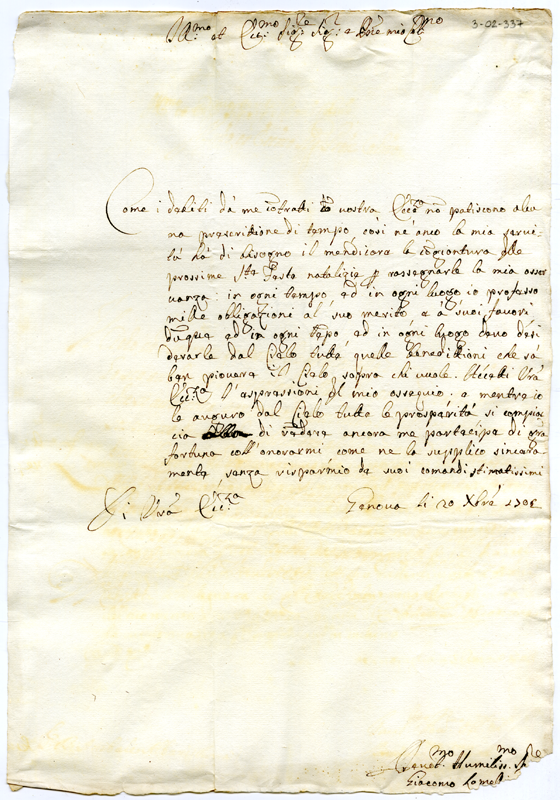 Ill.mo et Ecc.mo Sig.re Sig.r e Pne mio Col.mo
3-02-337
Come i debiti dà me contratti con vostra Ecc.a non patiscono alcu
na prescrittione di tempo, così ne anco la mia servi-
tù hà di bisogno il mendicare la congiontura delle
prossime S.te Feste natalizie p rassegnarle la mia osser
vanza: in ogni tempo, ed in ogni luogo io professo
mille obligationi al suo merito, e a suoi favori
dunque ed in ogni tempo, ed in ogni luogo devo desi
derarle dal Cielo tutte quelle benedittioni che sa
ben piovere il Cielo sopra chi vuole. Accetti Vra
Ecc.za l'espressioni del mio ossequio, e mentre io
le auguro dal Cielo tutte le prosperità si compiac
cia di rendere ancora me partecipe di gra
fortuna coll'onorarmi, come ne la supplico sincera
mente, senza risparmio de suoi comandi stimatissimi
Di Vra Ecc.za Genova li 20 Xbre 1708
Devot.mo Humiliss.mo Se
Giacomo Lomel